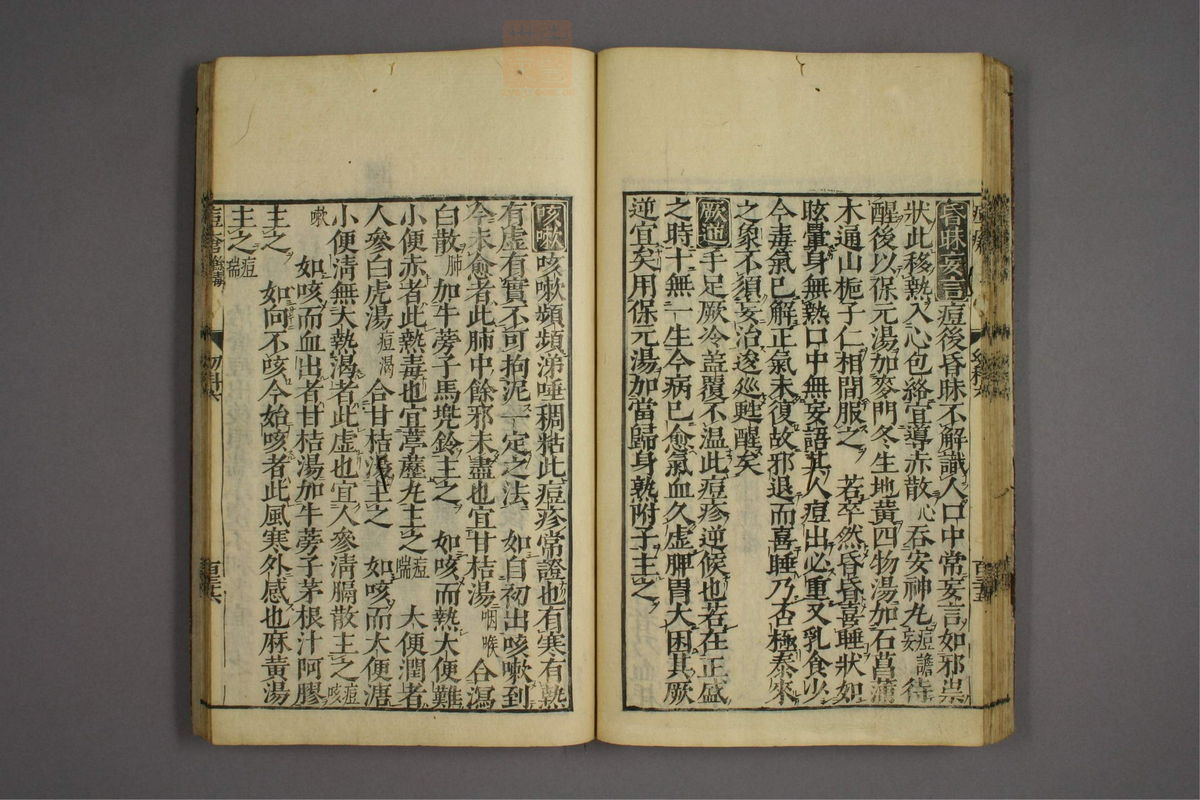 昏昧妄言痘後昏昧不解識人口中常妄言如邪祟
狀此移熱入心包絡宜導赤散心吞安神丸痘譫妄待
醒後以保元湯加麥門冬生地黃四物湯加石菖蒲
木通山梔子仁相間服之　若卒然昏昏喜睡狀如
眩暈身無熱口中無妄語其人痘出必重又乳食少
今毒氣已解正氣未復故邪退而喜睡乃否極泰來
之象不須妄治逡巡甦醒矣
厥逆手足厥冷蓋覆不温此痘疹逆候也若在正盛
之時十無一生今病已愈氣血久虛脾胃大困其厥
逆宜矣用保元湯加當歸身熟附子主之
咳嗽咳嗽頻頻涕唾稠粘此痘疹常證也有寒有熱
有虛有實不可拘泥一定之法　如自初出咳嗽到
今未愈者此肺中餘邪未盡也宜甘桔湯咽喉合瀉
白散肺加牛蒡子馬兜鈴主之　如咳而熱大便難
小便赤者此熱毒也宜葶藶丸主之痘喘　大便潤者
人參白虎湯痘渴合甘桔湯主之　如咳而大便溏
小便清無大熱渴者此虛也宜人參清膈散主之痘咳
嗽　如咳而血出者甘桔湯加牛蒡子茅根汁阿膠
主之　如向不咳今始咳者此風寒外感也麻黃湯
主之痘喘
幼科六
百三十六